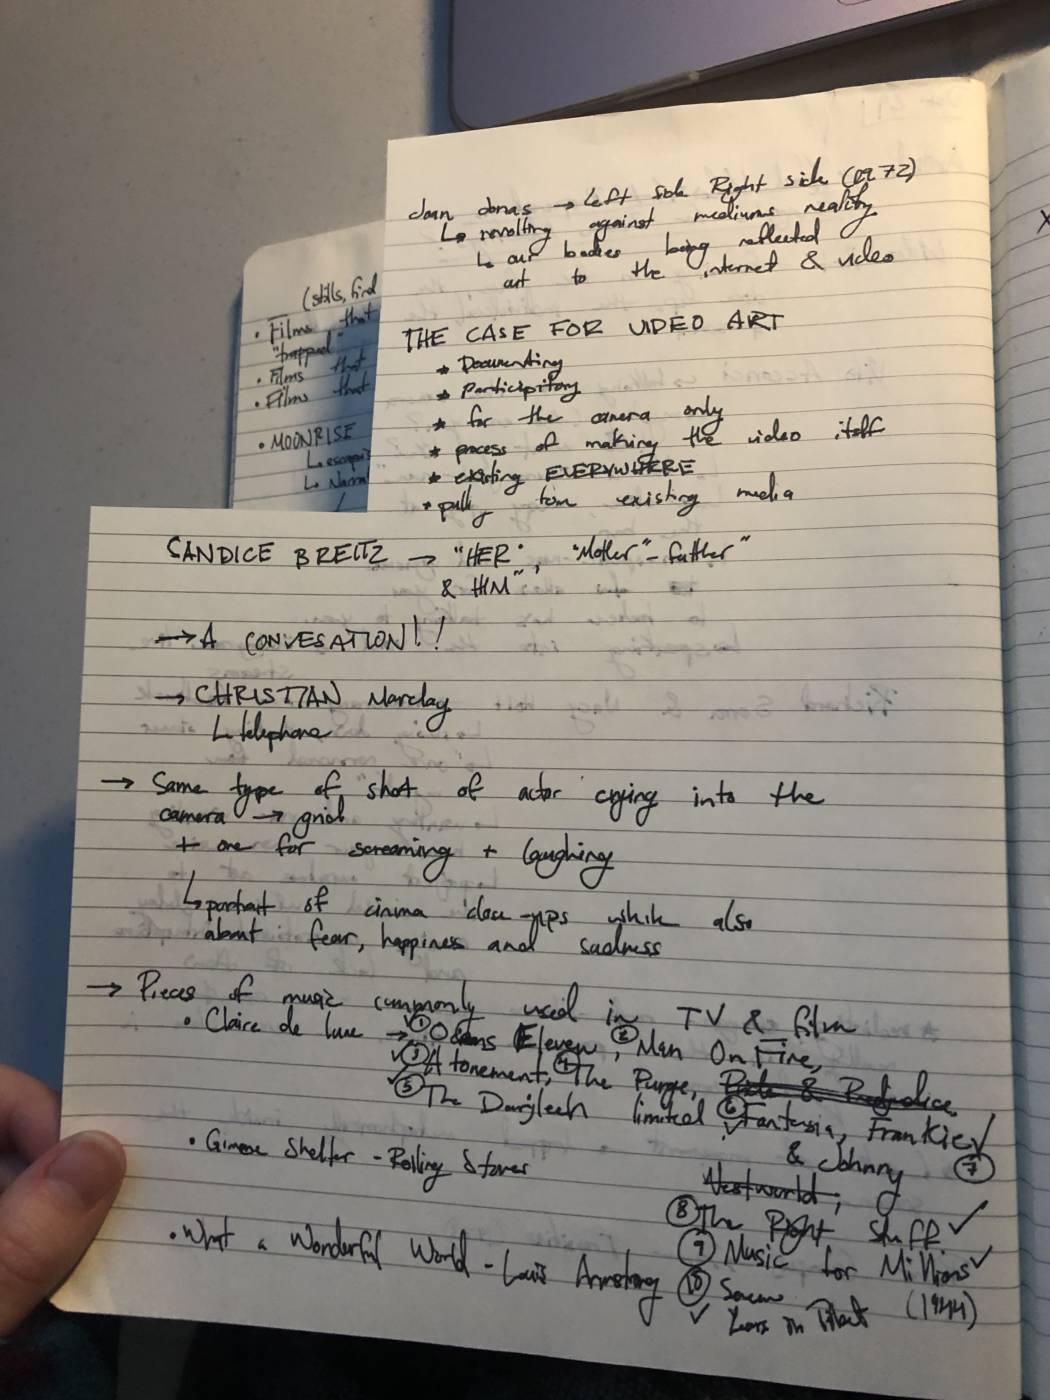 Joan Jonas → Left Side Right side (1972)
↳ revolting against mediums reality
↳ our bodies being reflected
out to the internet & video
THE CASE FOR VIDEO ART
* Documenting
* Participitory
* for the camera only
* process of making the video itself
* existing EVERYWHERE
* pully from existing media
(stills, find
• Films that
"trapped"
• Films that
• Films that
• MOONRISE
CANDICE BREITZ → "HER", "Mother"-father"
& HIM"
→ A CONVESATION!!
→ CHRISTIAN Marclay
↳ telephone
→ Same type of shot of actor crying into the
camera → grid
+ one for screaming + laughing
↳ portrait of cinima close-ups while also
about fear, happiness and sadness
→ Pieces of music commonly used in TV & film
• Claire de lune → ① Oceans Eleven, ② Man On Fire,
✓③ Atonement, ④ The Purge, Pride & Prejudice
✓⑤ The Darjleeh limited ⑥ Fantasia, Frankie ✓
✓ & Johnny ⑦
• Gimme Shelter - Rolling Stones
Westworld,
⑧ The Right Stuff ✓
⑨ Music for Millions ✓
(1944)
• What a Wonderful World - Louis Armstrong ⑩ Seven
✓ Years in Tibet